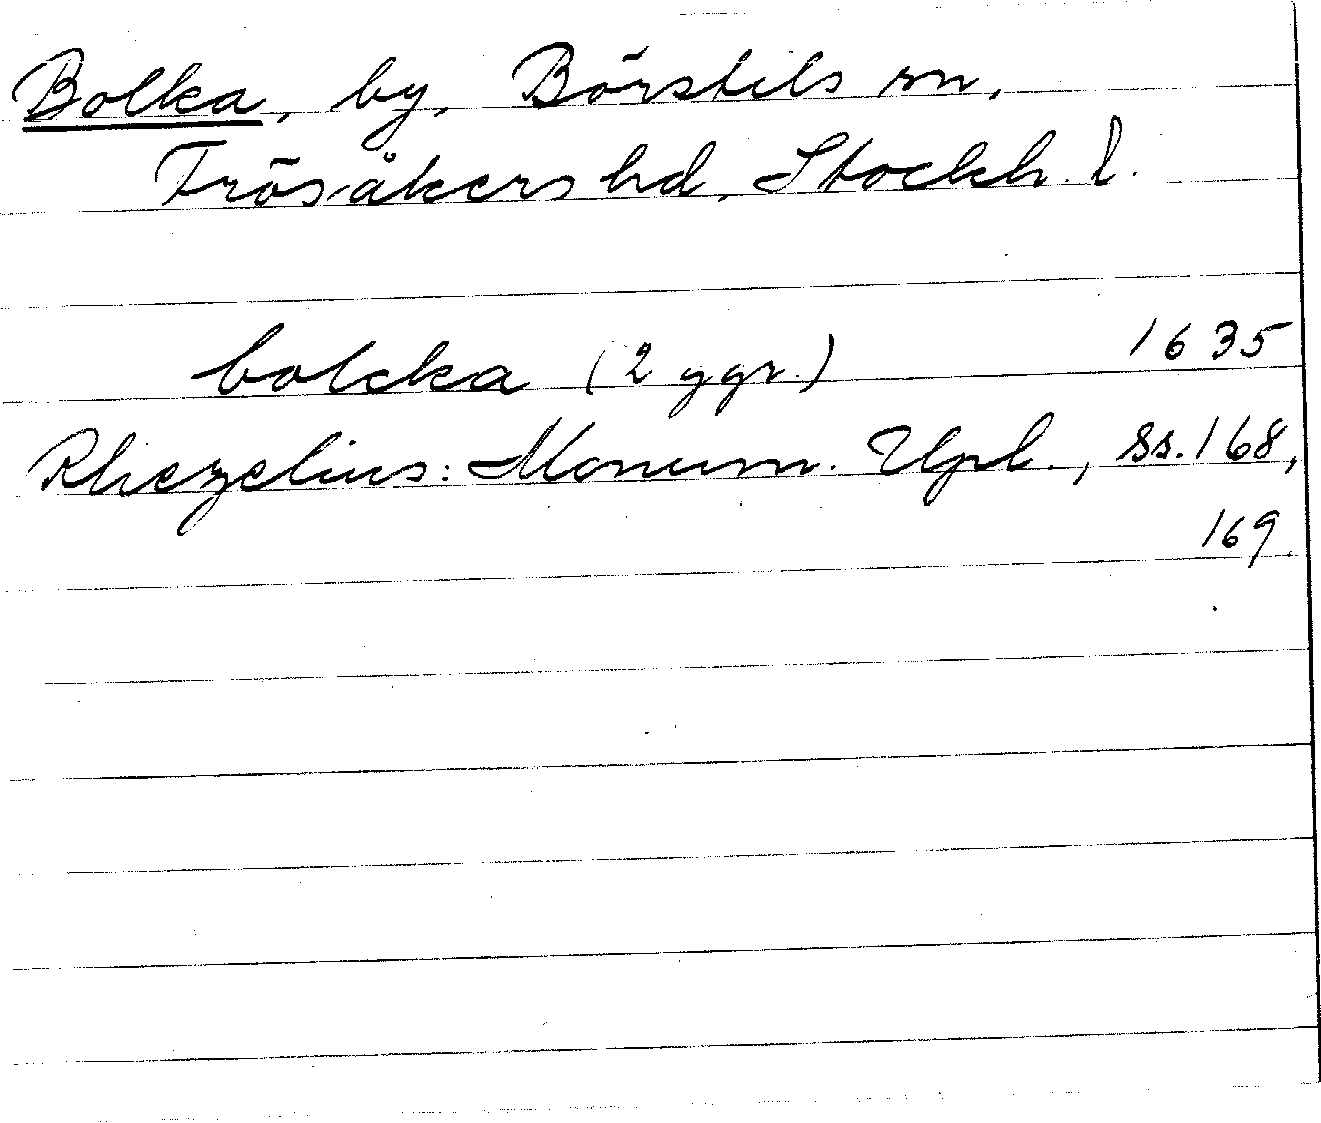 Bolka, by, Börstils sn,
Frösåkers hd, Stockh. l.
bolcka (2 ggr.) 1635
Rhezelius: Monum. Upl., ss. 168,
169.